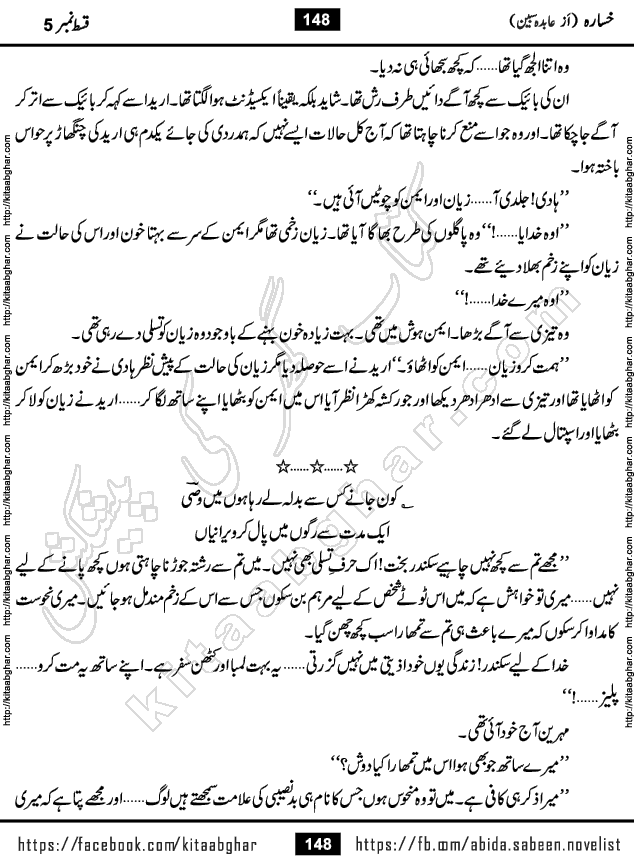 خسارہ (از عابدہ سبین) 148 قسط نمبر 5
وہ اتنا الجھ گیا تھا......کہ کچھ سجھائی ہی نہ دیا۔
ان کی بائیک سے کچھ آگے دائیں طرف رش تھا۔ شاید بلکہ یقیناً ایکسیڈنٹ ہوا لگتا تھا۔ اریدا سے کہہ کر بائیک سے اتر کر
آگے جا چکا تھا۔ اور وہ جو اسے منع کرنا چاہتا تھا کہ آج کل حالات ایسے نہیں کہ ہمدردی کی جائے یکدم ہی ارید کی چنگھاڑ پر حواس
باختہ ہوا۔
’’ہادی! جلدی آ......زیان اور ایمن کو چوٹیں آئی ہیں۔‘‘
’’اوہ خدایا......!‘‘ وہ پاگلوں کی طرح بھاگا آیا تھا۔ زیان زخمی تھا مگر ایمن کے سر سے بہتا خون اور اس کی حالت نے
زیان کو اپنے زخم بھلا دیئے تھے۔
’’اوہ میرے خدا......!‘‘
وہ تیزی سے آگے بڑھا۔ ایمن ہوش میں تھی۔ بہت زیادہ خون بہنے کے باوجود وہ زیان کو تسلی دے رہی تھی۔
’’ہمت کرو زیان......ایمن کو اٹھاؤ۔‘‘ ارید نے اسے حوصلہ دیا مگر زیان کی حالت کے پیش نظر ہادی نے خود بڑھ کر ایمن
کو اٹھایا تھا اور تیزی سے ادھر ادھر دیکھا اور جو رکشہ کھڑا نظر آیا اس میں ایمن کو بٹھایا اپنے ساتھ لگا کر......ارید نے زیان کو لا کر
بٹھایا اور اسپتال لے گئے۔
☆......☆......☆
؂ کون جانے کس سے بدلہ لے رہا ہوں میں وصی
ایک مدت سے رگوں میں پال کر ویرانیاں
’’مجھے تم سے کچھ نہیں چاہیے سکندر بخت! اک حرفِ تسلی بھی نہیں۔ میں تم سے رشتہ جوڑنا چاہتی ہوں کچھ پانے کے لیے
نہیں......میری تو خواہش ہے کہ میں اس ٹوٹے شخص کے لیے مرہم بن سکوں جس سے اس کے زخم مندمل ہو جائیں۔ میری نحوست
کا مداوا کر سکوں کہ میرے باعث ہی تم سے تمھارا سب کچھ چھن گیا۔
خدا کے لیے سکندر! زندگی یوں خود اذیتی میں نہیں گزرتی......یہ بہت لمبا اور کٹھن سفر ہے۔ اپنے ساتھ یہ مت کرو......
پلیز......!‘‘
مہرین آج خود آئی تھی۔
’’میرے ساتھ جو بھی ہوا اس میں تمھارا کیا دوش؟‘‘
’’میرا ذکر ہی کافی ہے۔ میں تو وہ منحوس ہوں جس کا نام ہی بدنصیبی کی علامت سمجھتے ہیں لوگ......اور مجھے پتا ہے کہ میری
https://facebook.com/kitaabghar 148 https://fb.com/abida.sabeen.novelist
http://kitaabghar.com http://kitaabghar.com http://kitaabghar.com http://kitaabghar.com http://kitaabghar.com http://kitaabghar.com
http://kitaabghar.com http://kitaabghar.com http://kitaabghar.com http://kitaabghar.com http://kitaabghar.com http://kitaabghar.com
کتاب گھر کی پیشکش
kitaabghar.com